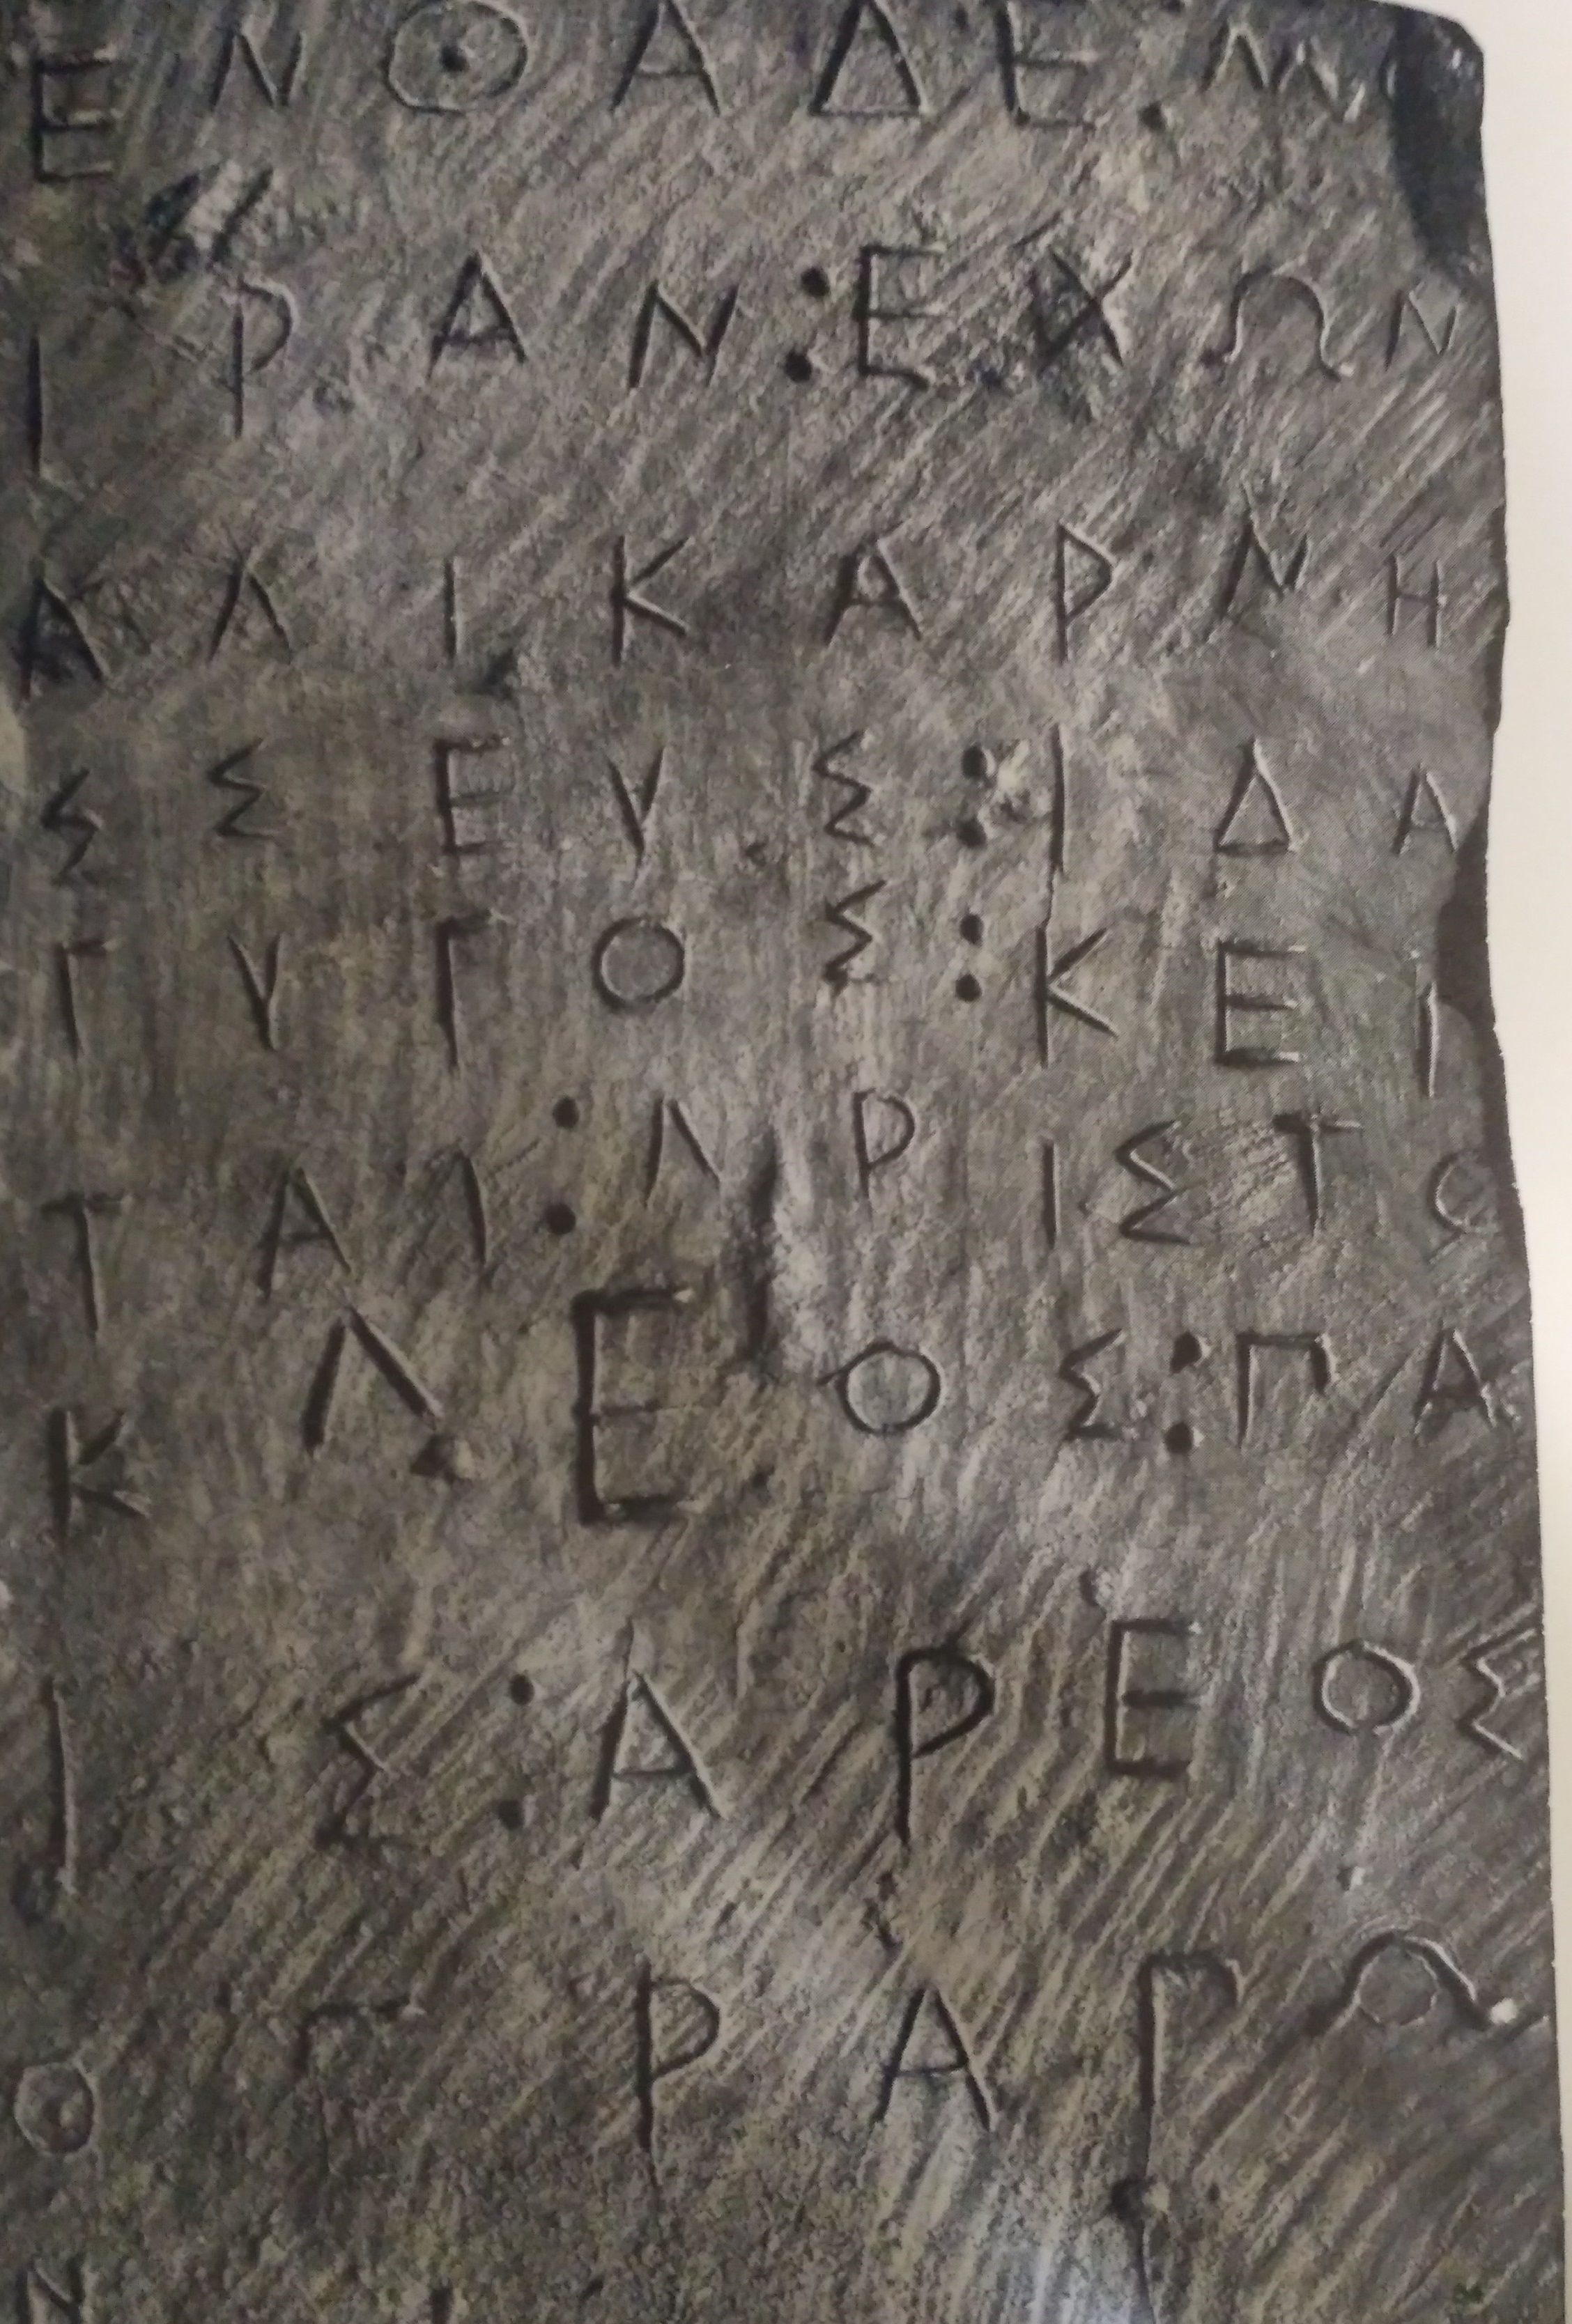 ΕΝΘΑΔΕ:Μ
ΙΡΑΝ:ΕΧΩΝ
ΑΛΙΚΑΡΝΗ
ΣΣΕΥΣ:ΙΔΑ
ΓΥΓΟΣ:ΚΕΙ
ΤΑΙ:ΑΡΙΣΤΟ
ΚΛΕΟΣ:ΠΑ
ΙΣ:ΑΡΕΟΣ
ΟΠΡΑΓΩ
Ν